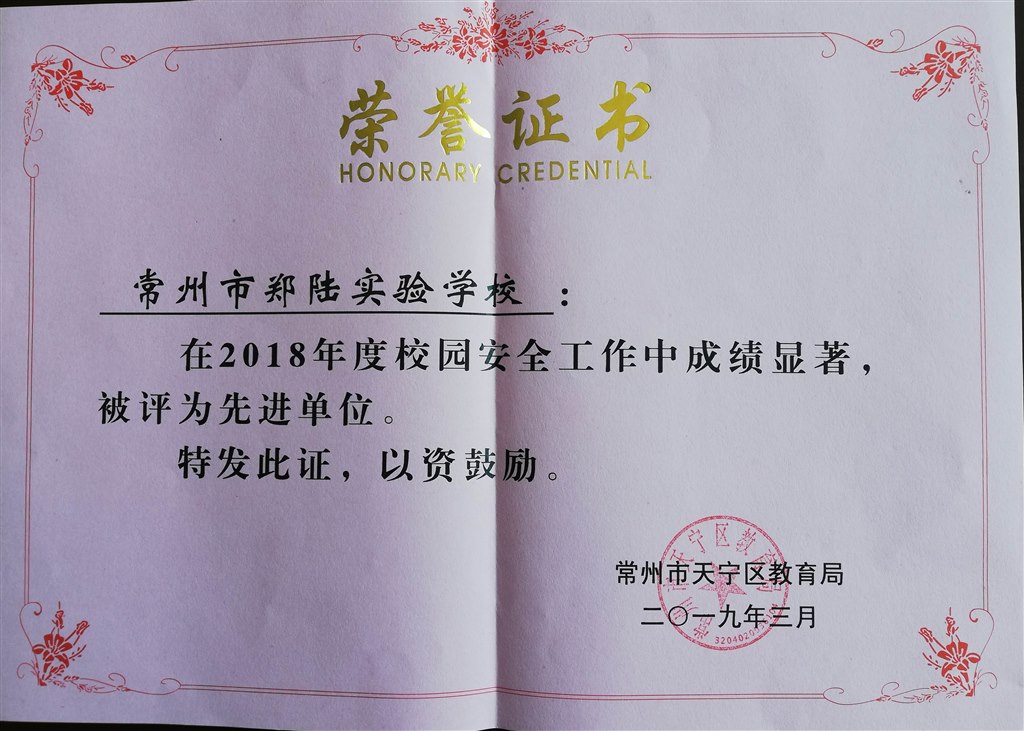 荣誉证书
HONORARY CREDENTIAL
常州市郑陆实验学校：
在2018年度校园安全工作中成绩显著，
被评为先进单位。
特发此证，以资鼓励。
常州市天宁区教育局
二〇一九年三月